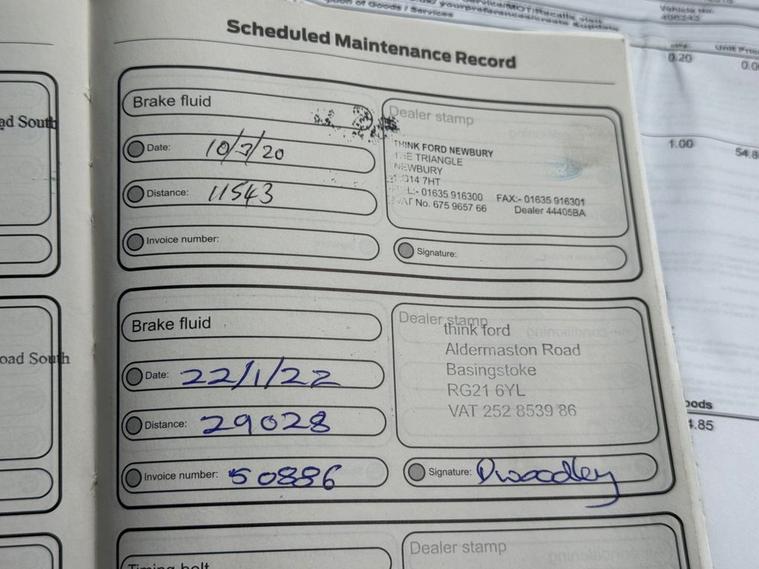 Scheduled Maintenance Record
Brake fluid
Date: 10/7/20
Distance: 11543
Invoice number:
Dealer stamp
THINK FORD NEWBURY
THE TRIANGLE
NEWBURY
RG14 7HT
TEL:- 01635 916300 FAX:- 01635 916301
VAT No. 675 9657 66 Dealer 44405BA
Signature:
Brake fluid
Date: 22/1/22
Distance: 29028
Invoice number: 50886
Dealer stamp
think ford
Aldermaston Road
Basingstoke
RG21 6YL
VAT 252 8539 86
Signature: Dwoodley
Timing belt
Dealer stamp
ad South
oad South
of Goods / Services
Vehicle
0.20
0.0
Unit
1.00
54.8
oods
4.85